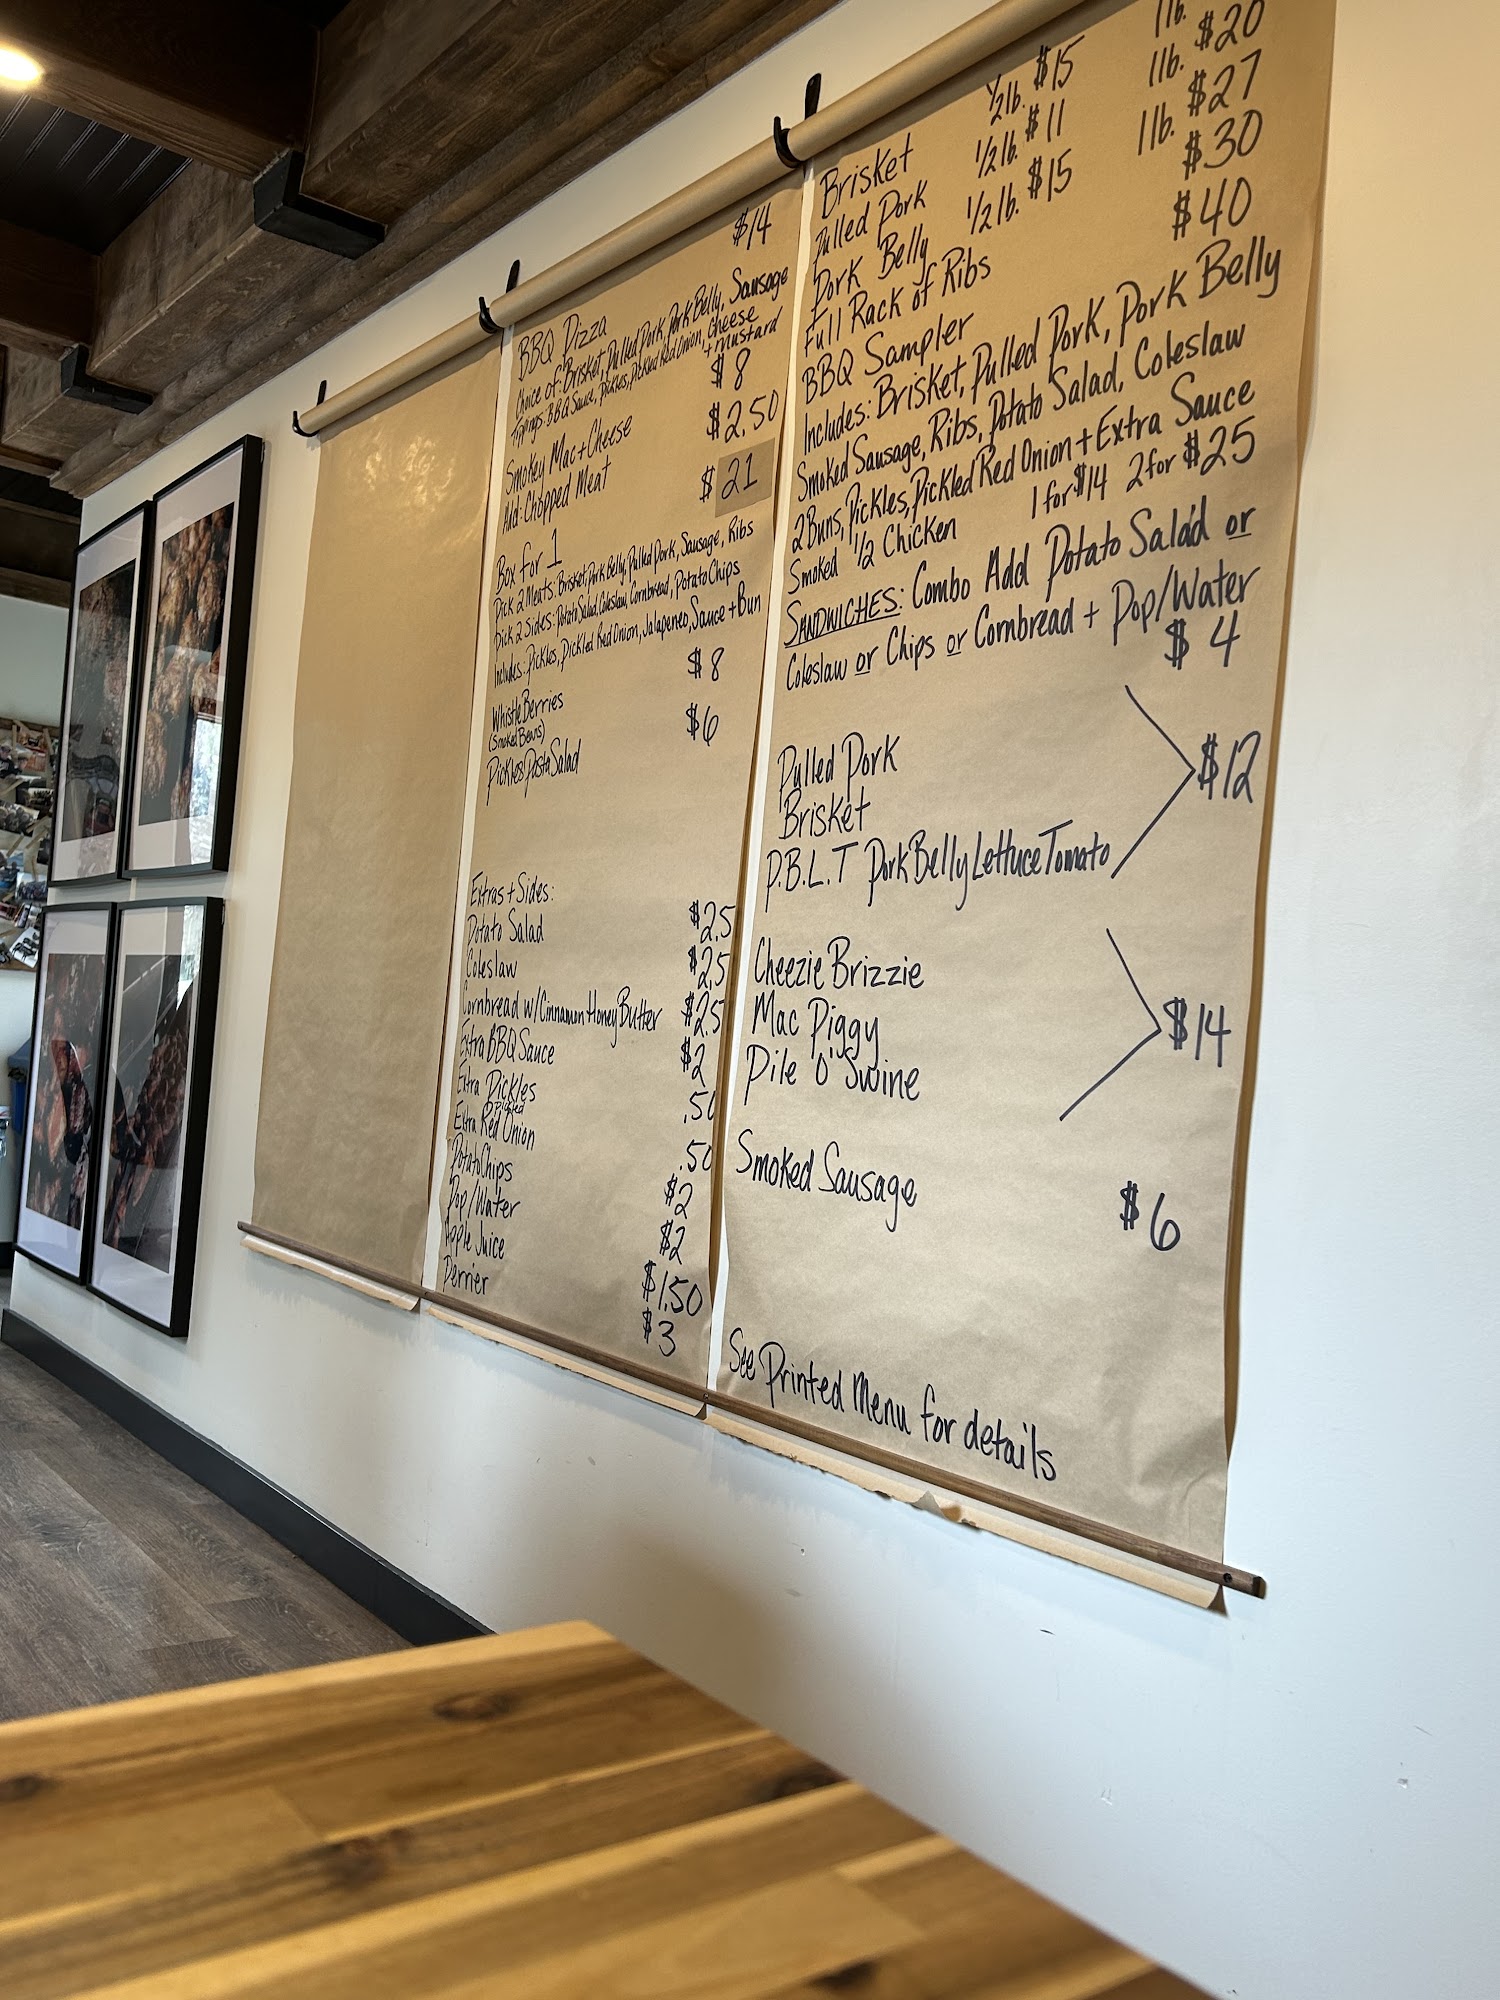 BBQ Pizza $14
Choice of: Brisket, Pulled Pork, Pork Belly, Sausage
Toppings: BBQ Sauce, Pickles, Pickled Red Onion, Cheese
+ Mustard
Smokey Mac + Cheese $8
Add: Chopped Meat $2.50
Box for 1 $21
Pick 2 Meats: Brisket, Pork Belly, Pulled Pork, Sausage, Ribs
Pick 2 Sides: Potato Salad, Coleslaw, Cornbread, Potato Chips
Includes: Pickles, Pickled Red Onion, Jalapeneo, Sauce + Bun
Whistle Berries $8
(Smoked Beans)
Pickles Pasta Salad $6
Extras + Sides:
Potato Salad $2.5
Coleslaw $2.5
Cornbread w/Cinnamon Honey Butter $2.5
Extra BBQ Sauce $2
Extra Pickles .50
Extra Pickled Red Onion .50
Potato Chips $2
Pop/Water $2
Apple Juice $1.50
Perrier $3
Brisket 1/2 lb. $15 1 lb.
Pulled Pork 1/2 lb. $11 1 lb. $20
Pork Belly 1/2 lb. $15 1 lb. $27
Full Rack of Ribs $30
BBQ Sampler $40
Includes: Brisket, Pulled Pork, Pork Belly
Smoked Sausage, Ribs, Potato Salad, Coleslaw
2 Buns, Pickles, Pickled Red Onion + Extra Sauce
Smoked 1/2 Chicken 1 for $14 2 for $25
SANDWICHES: Combo Add Potato Salad or
Coleslaw or Chips or Cornbread + Pop/Water
$4
Pulled Pork
Brisket $12
P.B.L.T Pork Belly Lettuce Tomato
Cheezie Brizzie
Mac Piggy $14
Pile O' Swine
Smoked Sausage $6
See Printed Menu for details